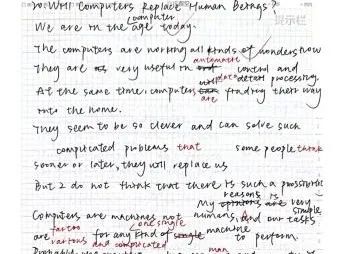 20. Will Computers Replace Human Beings?
提示栏
computer
We are in the age today.
The computers are working all kinds of wonders now
automatic
They are very useful in control and
data detail processing.
At the same time, computers are finding their way
into the home.
They seem to be so clever and can solve such
complicated problems that some people think
sooner or later, they will replace us
But I do not think that there is such a
My reasons is very
simple
Computers are machines not humans, And our tasks
factor one single
are for any kind of single machine
various and complicated to perform.
man